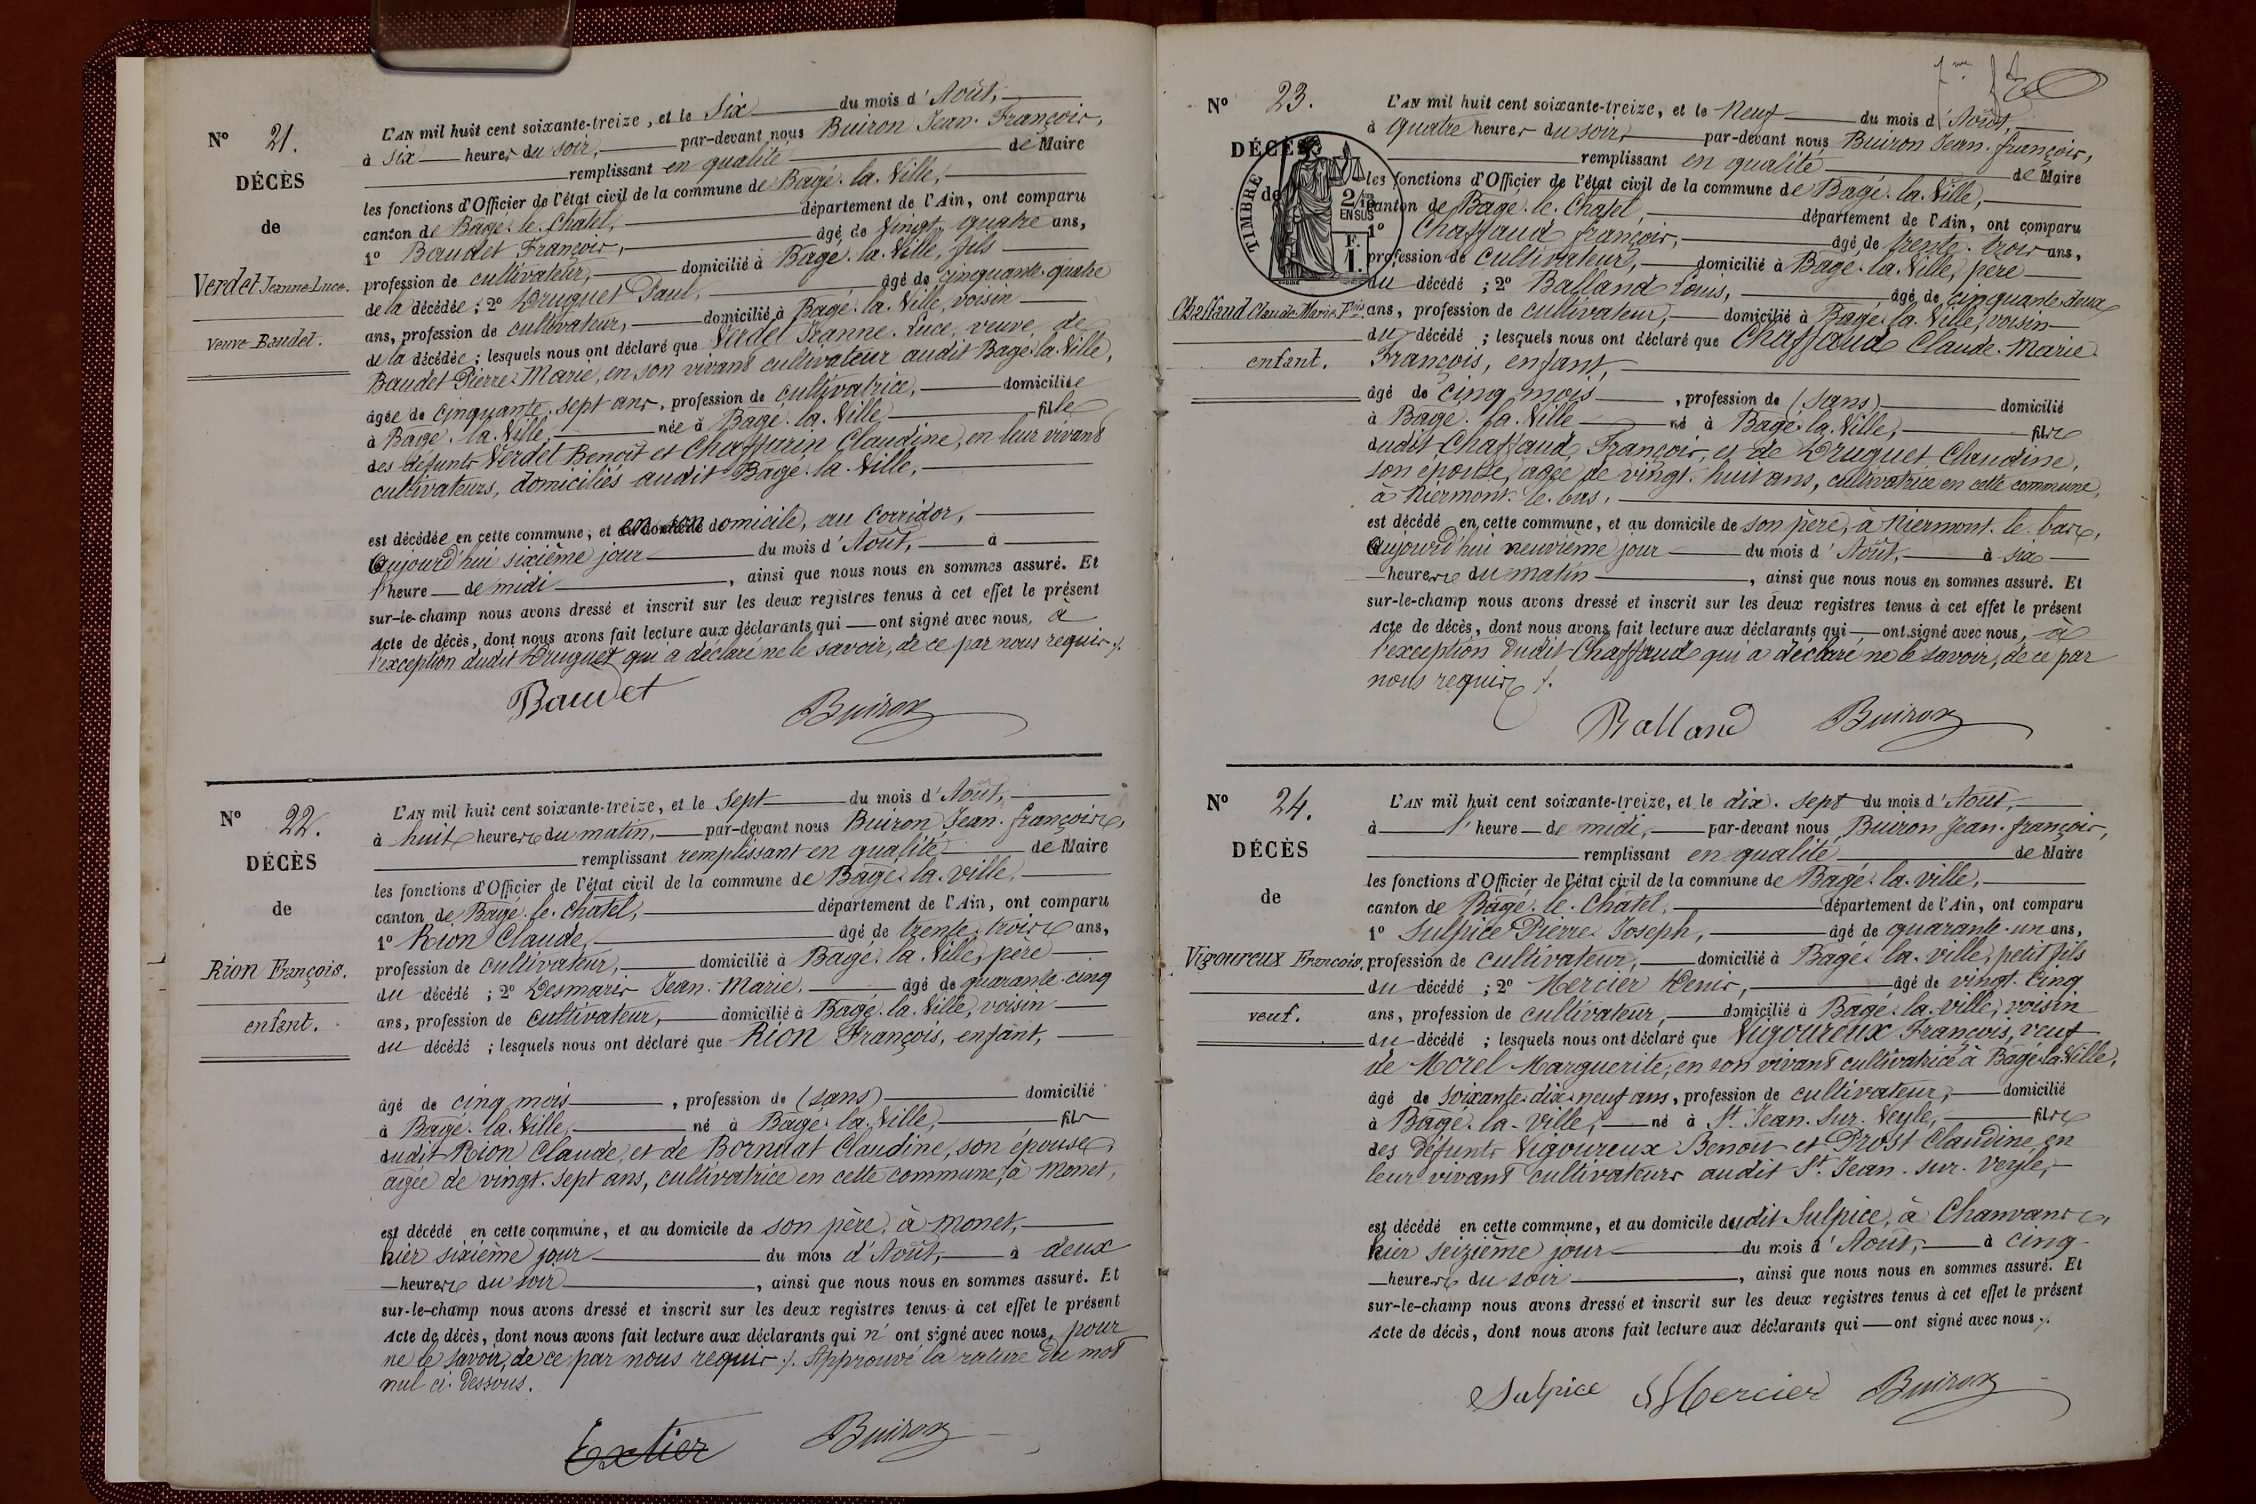 N° 21.
DÉCÈS
de
Verdet Jeanne-Luce.
veuve Baudet.
L'AN mil huit cent soixante-treize, et le Six du mois d'Août,
à six heures du soir, par-devant nous Buiron Jean-François,
remplissant en qualité de Maire
les fonctions d'Officier de l'état civil de la commune de Bagé-la-Ville,
canton de Bâgé-le-Châtel, département de l'Ain, ont comparu
1° Baudet François, âgé de vingt-quatre ans,
profession de cultivateur, domicilié à Bagé-la-Ville, fils
de la décédée ; 2° Druguet Paul, âgé de cinquante-quatre
ans, profession de cultivateur, domicilié à Bagé-la-Ville, voisin
de la décédée ; lesquels nous ont déclaré que Verdet Jeanne-Luce, veuve de
Baudet Pierre-Marie, en son vivant cultivateur audit Bagé-la-Ville,
âgée de cinquante-sept ans, profession de cultivatrice, domiciliée
à Bagé-la-Ville, née à Bagé-la-Ville fille
des défunts Verdet Benoît et Chaffurin Claudine, en leur vivant
cultivateurs, domiciliés audit Bagé-la-Ville,
est décédée en cette commune, et en son domicile, au Corridor,
Aujourd'hui sixième jour du mois d'Août, à
l'heure de midi, ainsi que nous nous en sommes assuré. Et
sur-le-champ nous avons dressé et inscrit sur les deux registres tenus à cet effet le présent
Acte de décès, dont nous avons fait lecture aux déclarants qui ont signé avec nous, à
l'exception dudit Druguet qui a déclaré ne le savoir, de ce par nous requis ./.
Baudet Buiron
N° 22.
DÉCÈS
de
Rion François.
enfant.
L'AN mil huit cent soixante-treize, et le Sept du mois d'Août,
à huit heures du matin, par-devant nous Buiron Jean-François,
remplissant remplissant en qualité de Maire
les fonctions d'Officier de l'état civil de la commune de Bagé-la-ville,
canton de Bâgé-le-Châtel, département de l'Ain, ont comparu
1° Rion Claude, âgé de trente-trois ans,
profession de cultivateur, domicilié à Bagé-la-Ville, père
du décédé ; 2° Desmaris Jean-Marie, âgé de quarante-cinq
ans, profession de cultivateur, domicilié à Bagé-la-Ville, voisin
du décédé ; lesquels nous ont déclaré que Rion François, enfant,
âgé de cinq mois, profession de (sans) domicilié
à Bagé-la-Ville, né à Bagé-la-Ville, fils
dudit Rion Claude, et de Borndat Claudine, son épouse,
agée de vingt-sept ans, cultivatrice en cette commune, à Monet,
est décédé en cette commune, et au domicile de son père, à Monet,
hier sixième jour du mois d'Août, à deux
heures du soir, ainsi que nous nous en sommes assuré. Et
sur-le-champ nous avons dressé et inscrit sur les deux registres tenus à cet effet le présent
Acte de décès, dont nous avons fait lecture aux déclarants qui n'ont signé avec nous, pour
ne le savoir, de ce par nous requis ./. Approuvé la rature du mot
nul ci-dessous.
Extier Buiron
N° 23.
DÉCÈS
de
TIMBRE
2/10
EN SUS
F.
1.
Chaffaud Claude-Marie-Fçois
enfant.
L'AN mil huit cent soixante-treize, et le Neuf du mois d'Août,
à quatre heures du soir, par-devant nous Buiron Jean-François,
remplissant en qualité de Maire
les fonctions d'Officier de l'état civil de la commune de Bagé-la-Ville,
canton de Bagé-le-Chatel, département de l'Ain, ont comparu
1° Chaffaud François, âgé de trente-trois ans,
profession de cultivateur, domicilié à Bagé-la-Ville, père
du décédé ; 2° Balland Louis, âgé de cinquante-deux
ans, profession de cultivateur, domicilié à Bagé-la-Ville, voisin
du décédé ; lesquels nous ont déclaré que Chaffaud Claude-Marie-
François, enfant,
âgé de cinq mois, profession de (sans) domicilié
à Bagé-la-Ville né à Bagé-la-Ville, fils
dudit Chaffaud François, et de Druguet Claudine,
son épouse, agée de vingt-huit ans, cultivatrice en cette commune,
à Niermont-le-bas,
est décédé en cette commune, et au domicile de son père, à Niermont-le-bas,
Aujourd'hui neuvième jour du mois d'Août, à six
heures du matin, ainsi que nous nous en sommes assuré. Et
sur-le-champ nous avons dressé et inscrit sur les deux registres tenus à cet effet le présent
Acte de décès, dont nous avons fait lecture aux déclarants qui ont signé avec nous, à
l'exception dudit Chaffaud qui a déclaré ne le savoir, de ce par
nous requis ./.
Balland Buiron
N° 24.
DÉCÈS
de
Vigoureux François,
veuf.
L'AN mil huit cent soixante-treize, et le dix-sept du mois d'Août,
à l'heure de midi, par-devant nous Buiron Jean-François,
remplissant en qualité de Maire
les fonctions d'Officier de l'état civil de la commune de Bagé-la-ville,
canton de Bâgé-le-Châtel, département de l'Ain, ont comparu
1° Sulpice Pierre-Joseph, âgé de quarante-un ans,
profession de cultivateur, domicilié à Bagé-la-ville, petit fils
du décédé ; 2° Mercier Denis, âgé de vingt-cinq
ans, profession de cultivateur, domicilié à Bagé-la-ville, voisin
du décédé ; lesquels nous ont déclaré que Vigoureux François, veuf
de Morel Marguerite, en son vivant cultivatrice à Bagé-la-Ville,
âgé de soixante-dix-neuf ans, profession de cultivateur, domicilié
à Bagé-la-Ville, né à St Jean-sur-Veyle, fils
des défunts Vigoureux Benoit et Prost Claudine, en
leur vivant cultivateurs audit St Jean-sur-Veyle,
est décédé en cette commune, et au domicile dudit Sulpice, à Chanvans,
hier seizième jour du mois d'Août, à cinq
heures du soir, ainsi que nous nous en sommes assuré. Et
sur-le-champ nous avons dressé et inscrit sur les deux registres tenus à cet effet le présent
Acte de décès, dont nous avons fait lecture aux déclarants qui ont signé avec nous ./.
Sulpice Mercier Buiron